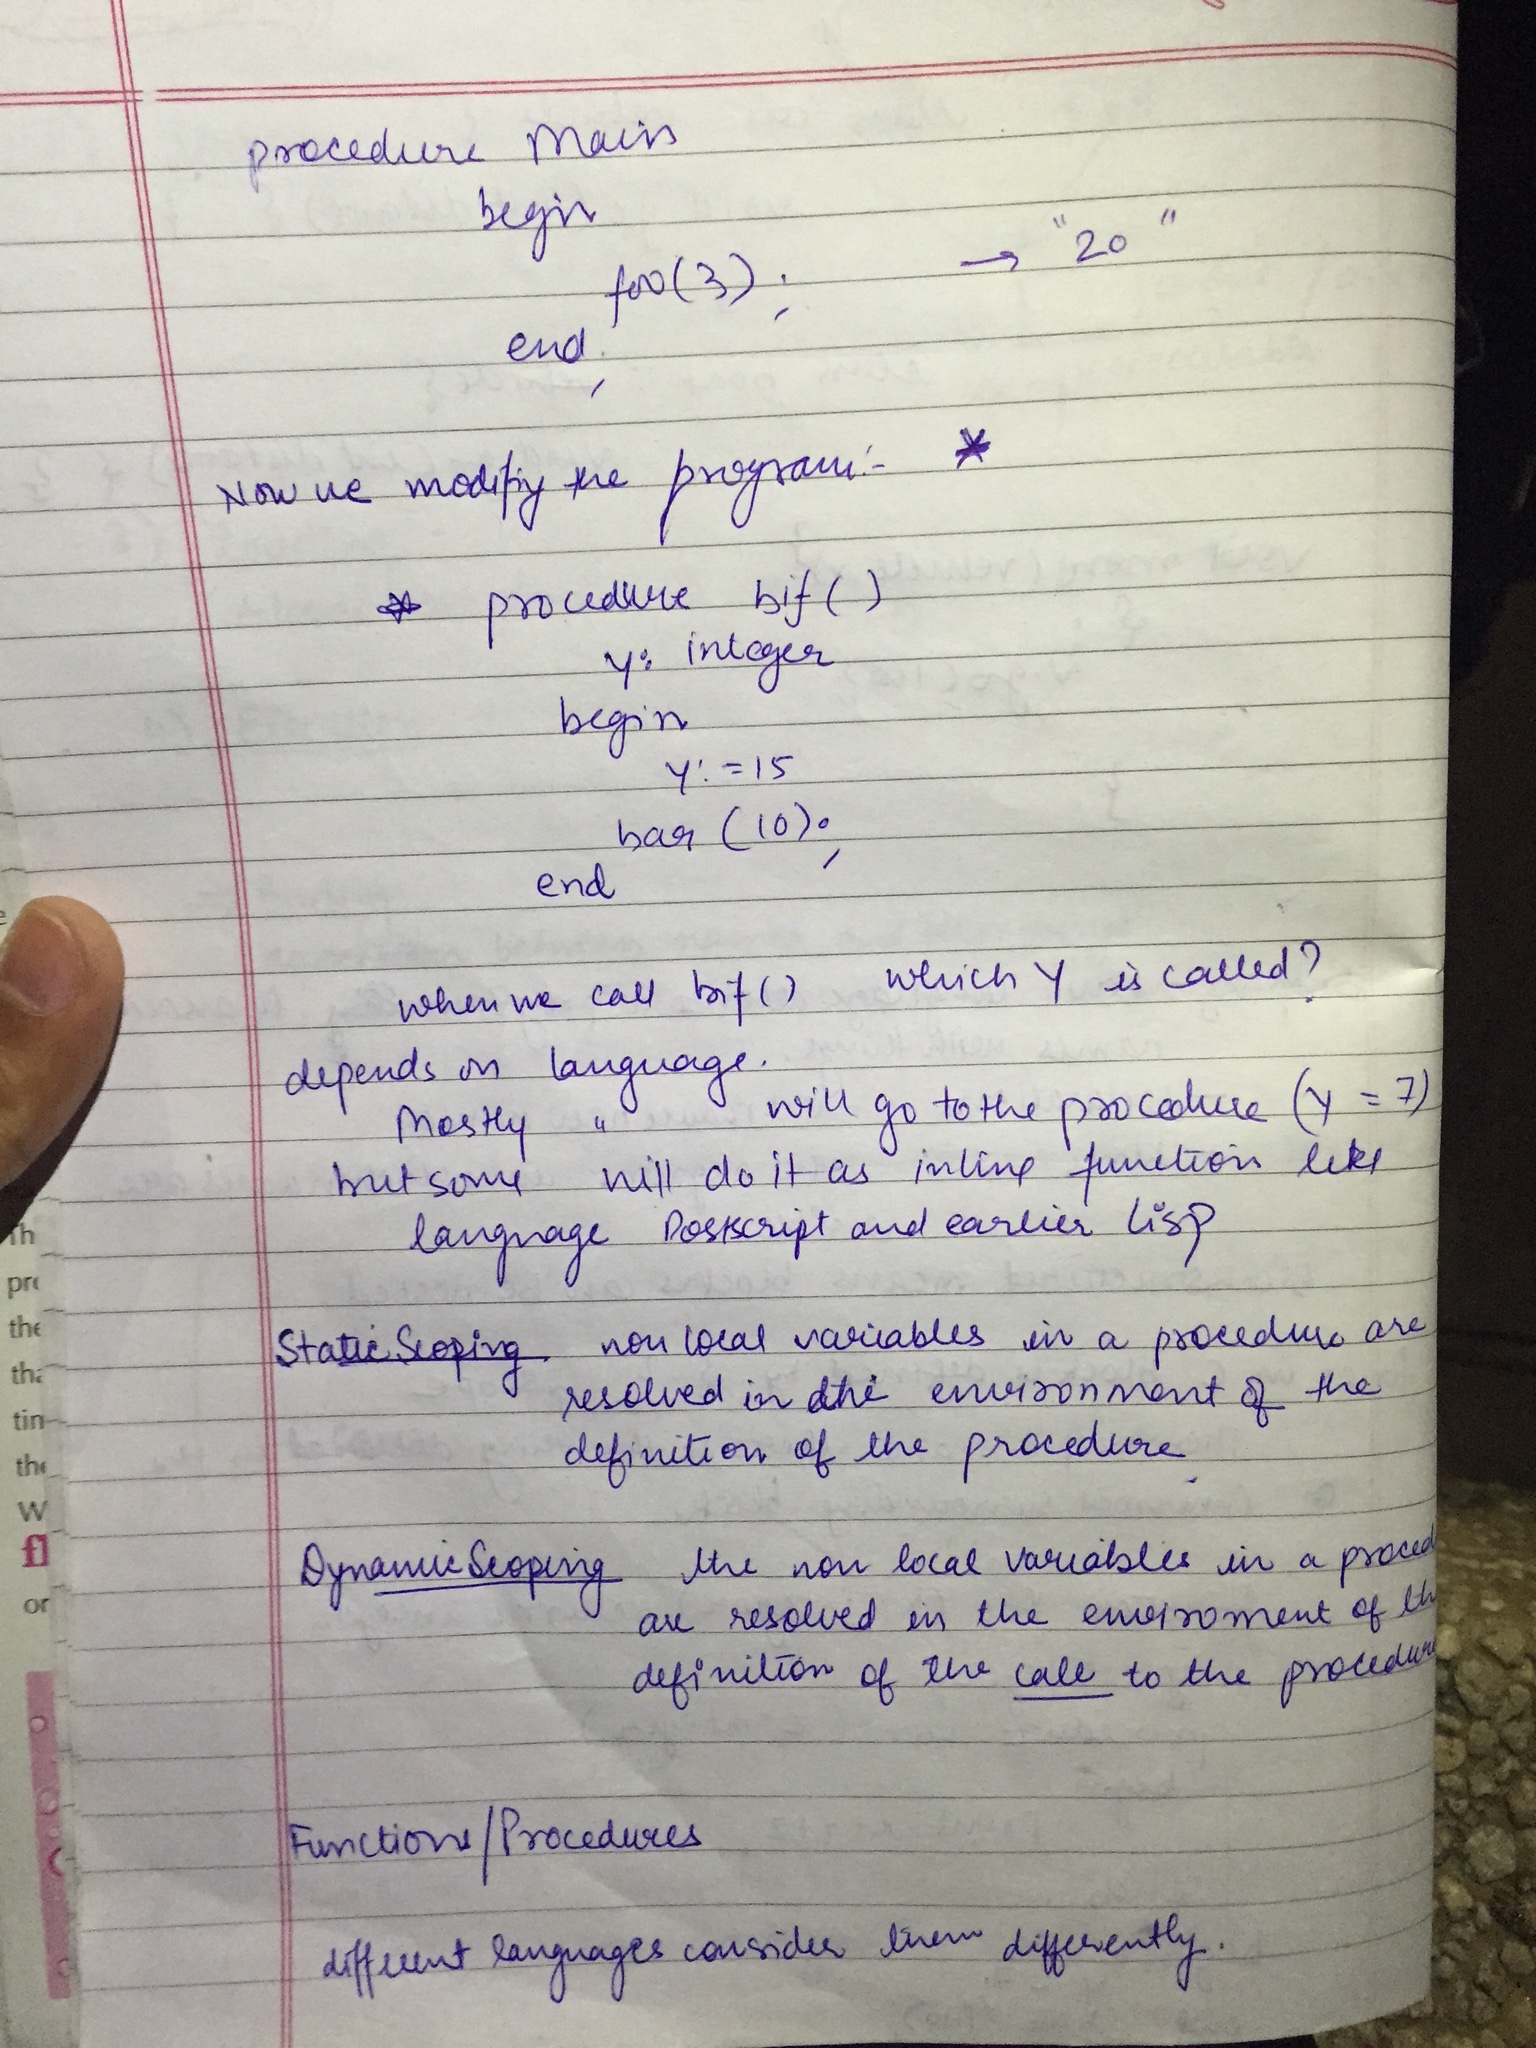 procedure Main
begin
foo(3); → "20"
end;
Now we modify the program:- *
* procedure bif()
y: integer
begin
y:=15
bar (10);
end
when we call bif() which Y is called?
depends on language.
Mostly " will go to the procedure (y = 7)
but some will do it as inline function like
language Postscript and earlier Lisp
Static Scoping. non local variables in a procedure are
resolved in the environment of the
definition of the procedure.
Dynamic Scoping the non local variables in a proced
are resolved in the enviroment of th
definition of the call to the procedure
Functions/Procedures
different languages consider them differently.
Th
pro
the
tha
tin
the
W
fl
or